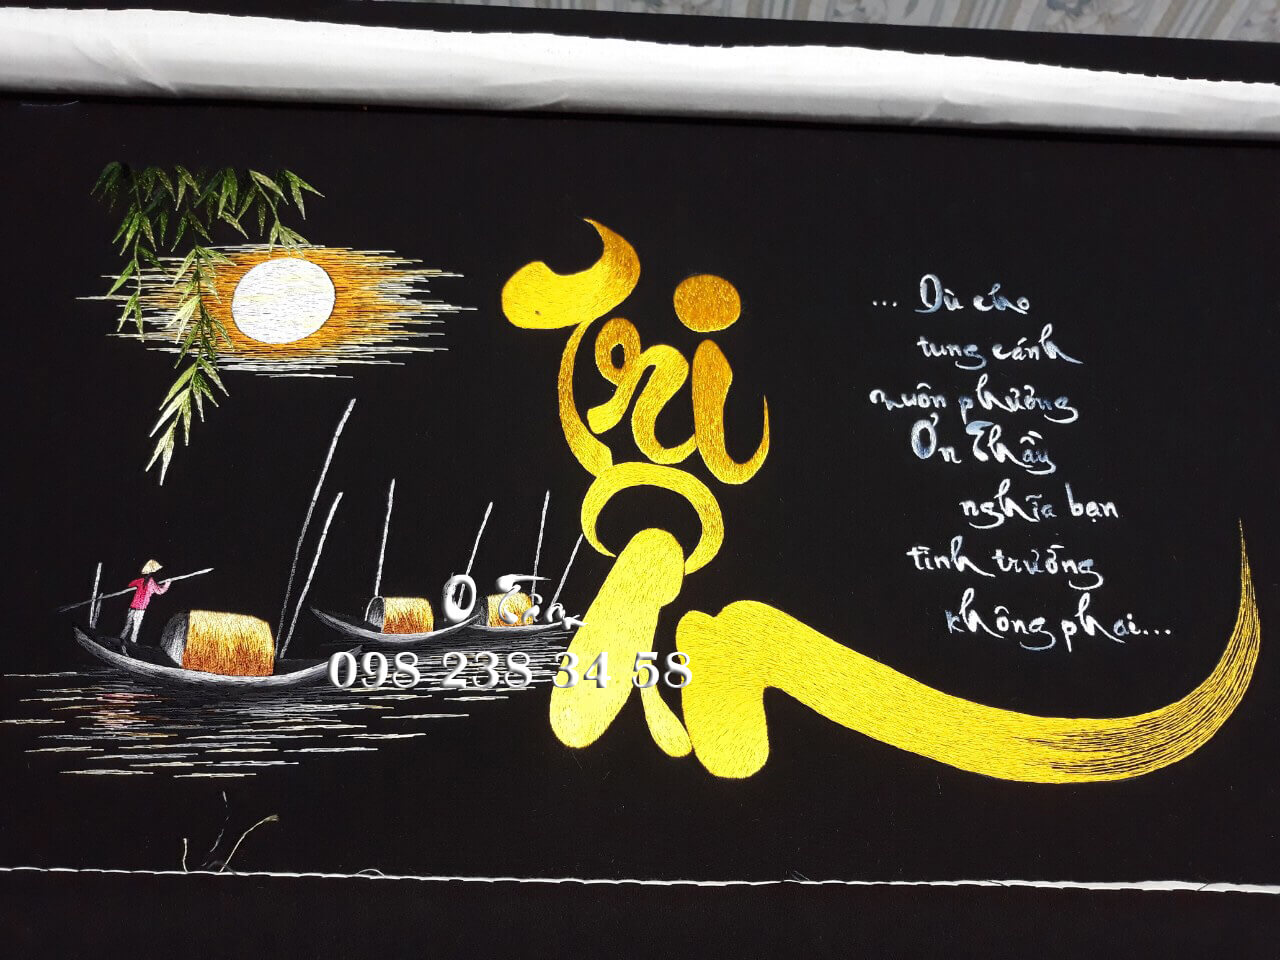 Tri
Ân
... Dù cho
tung cánh
muôn phương
Ơn Thầy
nghĩa bạn
tình trường
không phai...
098 238 34 58